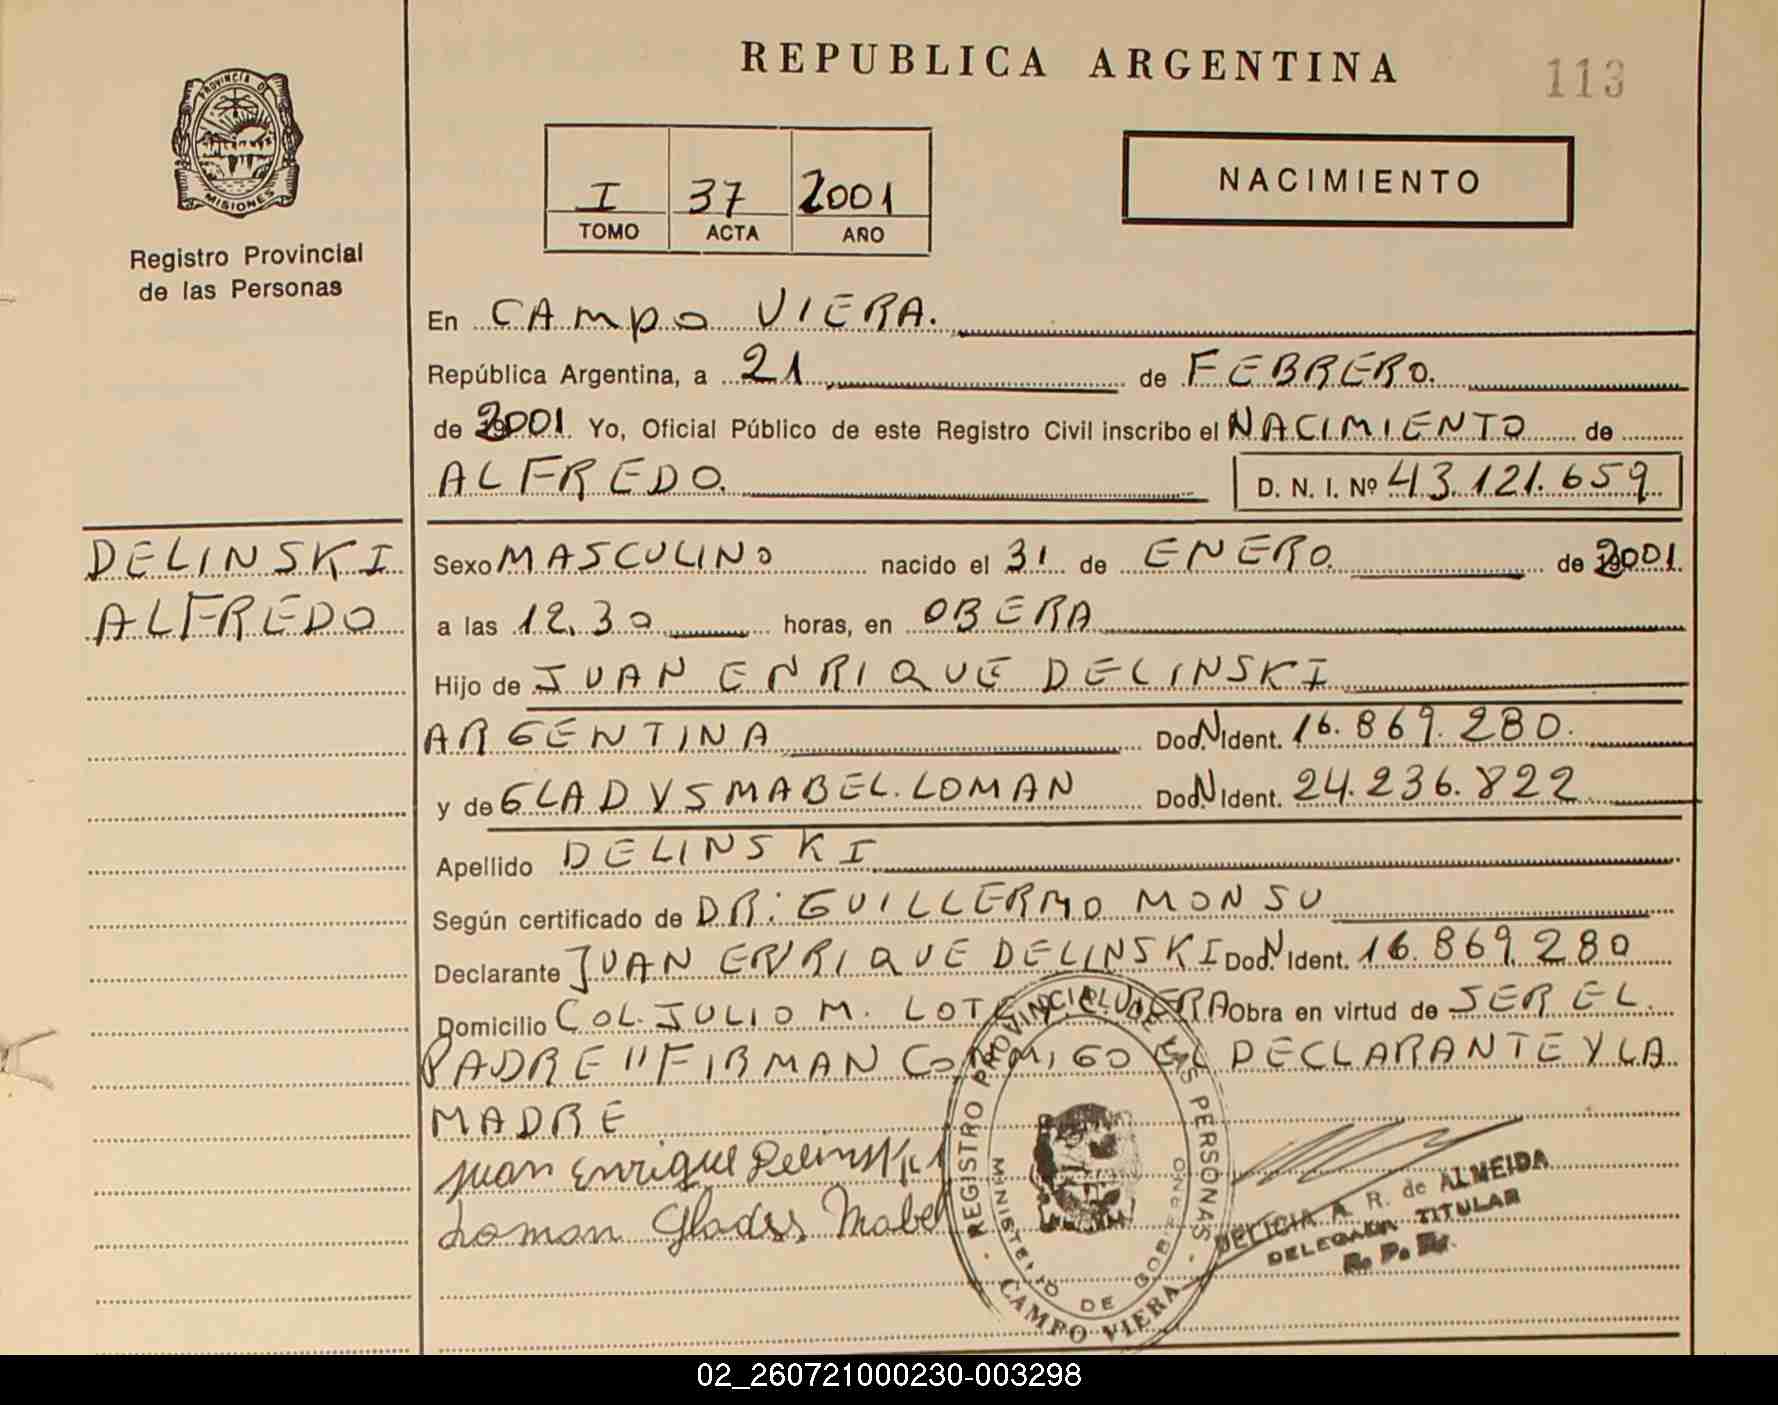 REPUBLICA ARGENTINA
113
PROVINCIA DE
MISIONES
Registro Provincial
de las Personas
I 37 2001
TOMO ACTA AÑO
NACIMIENTO
En CAMPO VIERA.
República Argentina, a 21 de FEBRERO.
de 2001 Yo, Oficial Público de este Registro Civil inscribo el NACIMIENTO de
ALFREDO. D. N. I. Nº 43.121.659
DELINSKI
ALFREDO
Sexo MASCULINO nacido el 31 de ENERO. de 2001.
a las 12.30 horas, en OBERA
Hijo de JUAN ENRIQUE DELINSKI
ARGENTINA Doc. N Ident. 16.869.280.
y de GLADYS MABEL. LOMAN Doc. N Ident. 24.236.822
Apellido DELINSKI
Según certificado de DR: GUILLERMO MONSU
Declarante JUAN ENRIQUE DELINSKI Doc. N Ident. 16.869.280
Domicilio COL. JULIO M. LOTE VIERA Obra en virtud de SER EL.
PADRE "FIRMAN CONMIGO EL DECLARANTE Y LA
MADRE
Juan Enrique Delinski
Loman Gladys Mabel
REGISTRO PROVINCIAL DE LAS PERSONAS
MINISTERIO DE GOBIERNO
CAMPO VIERA
DELICIA A. R. de ALMEIDA
DELEGADA TITULAR
R. P. P.
02_260721000230-003298